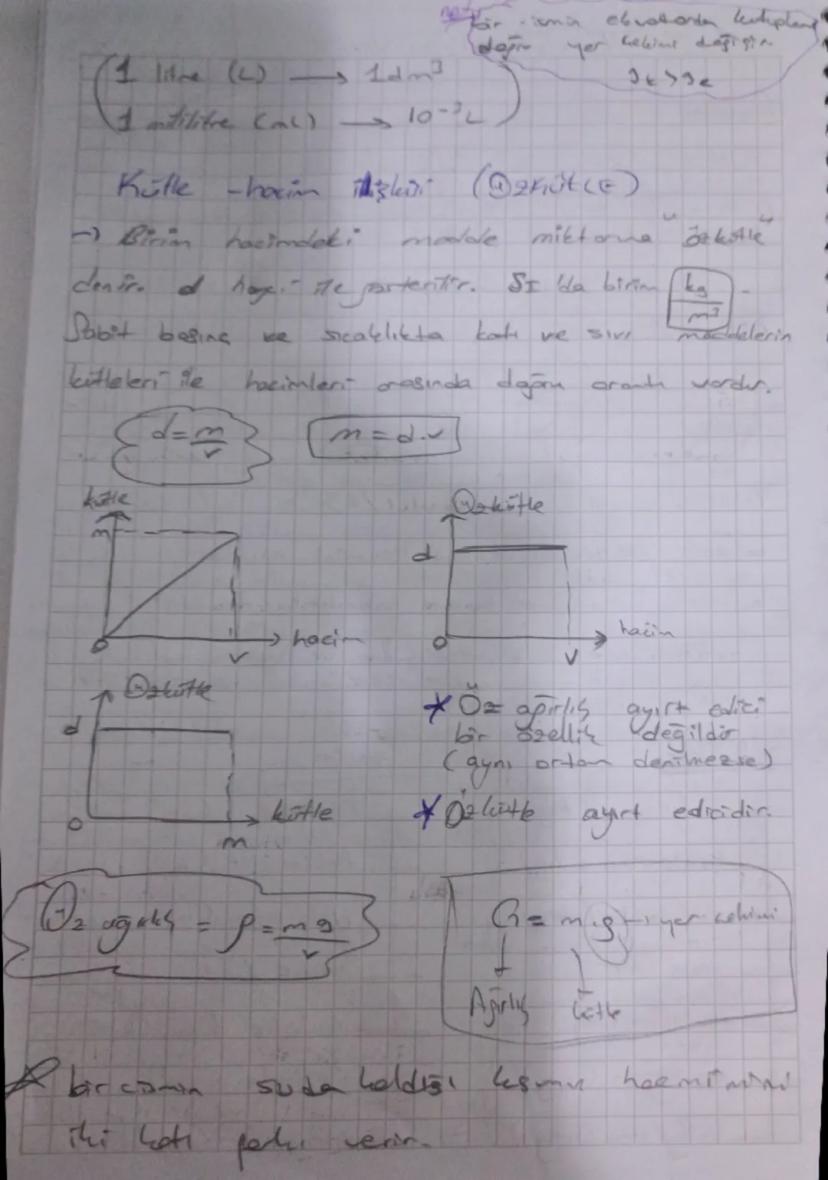 bir cismin ekvatordan kutuplara
doğru yer çekimi değişir
1 litre (L) → 1dm³
1 mililitre (mL) → 10⁻³L
Kütle - hacim ilişkisi (ÖZKÜTLE)
→ Birim hacimdeki madde miktarına "özkütle"
denir. d harfi ile gösterilir. SI da birim kg/m³
Sabit basınç ve sıcaklıkta katı ve sıvı maddelerin
kütleleri ile hacimleri arasında doğru orantı vardır.
d = m/v m = d.v
kütle
m
0 v hacim
Özkütle
d
0 v hacim
Özkütle
d
0 m kütle
* Öz ağırlık ayırt edici
bir özellik değildir
(aynı ortam denilmezse)
* Özkütle ayırt edicidir.
Öz ağırlık = ρ = mg/v
G = m.g → yer çekimi
Ağırlık kütle
bir cismin suda
iki katı verir.